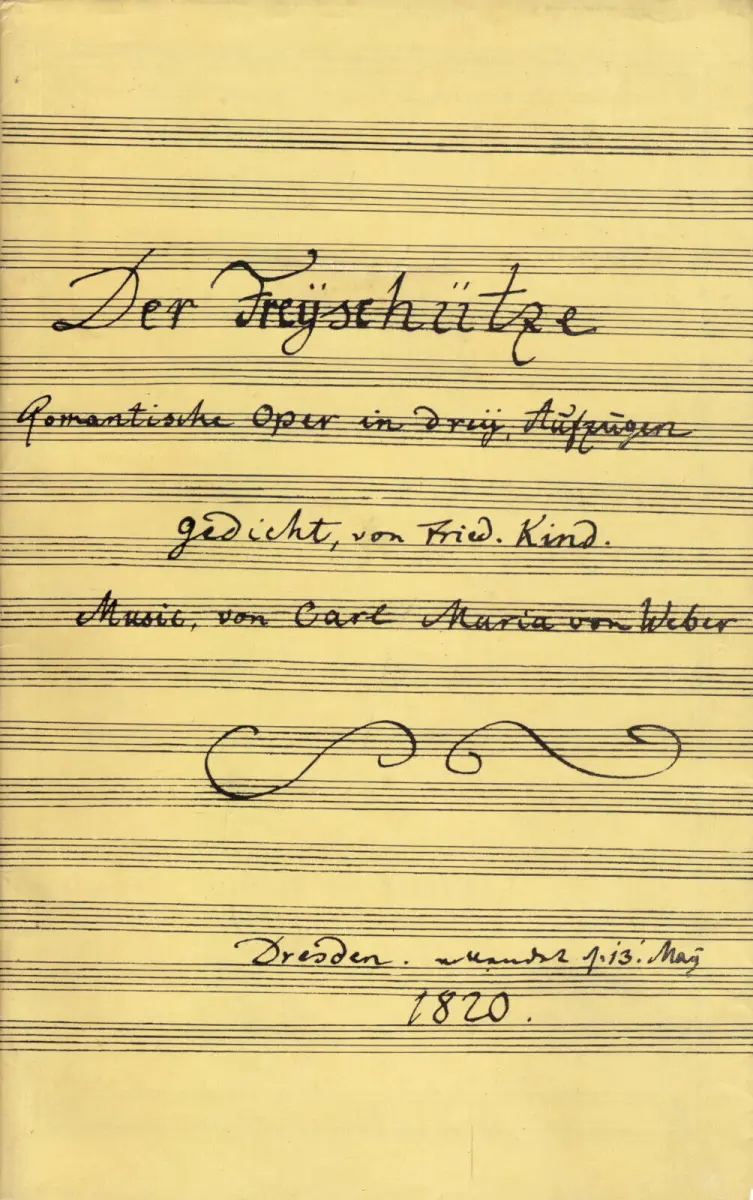 Der Freÿschütze
Romantische Oper in dreÿ Aufzügen
gedicht, von Fried. Kind.
Music, von Carl Maria von Weber
Dresden. vollendet d: 13: Maÿ
1820.